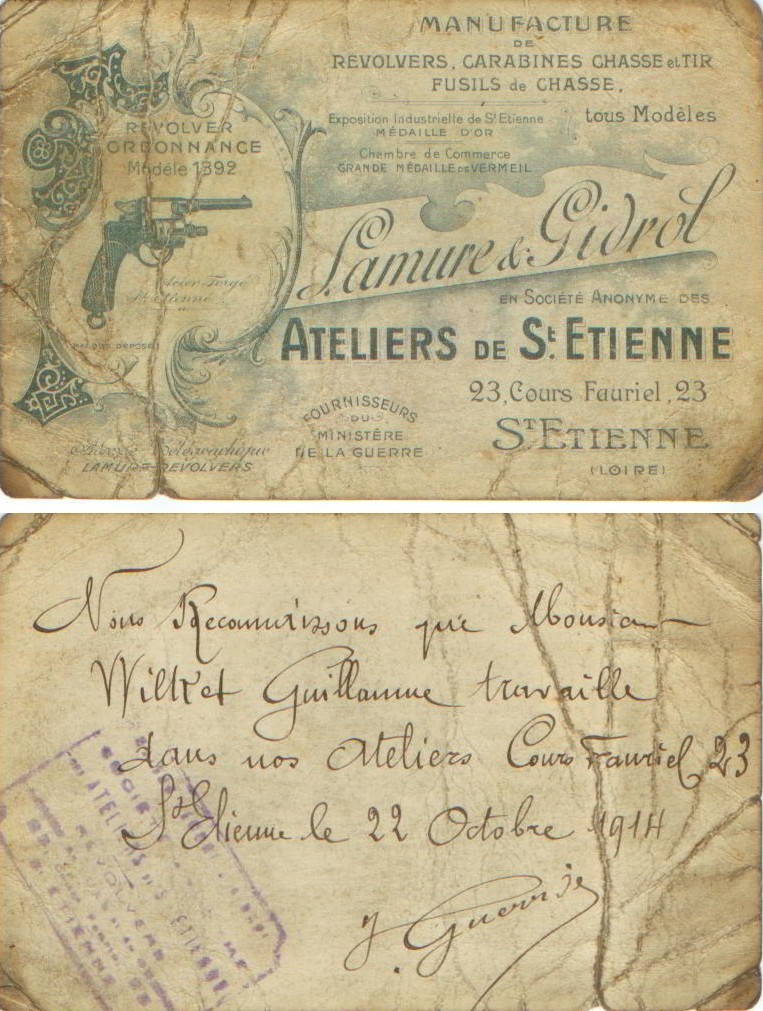 MANUFACTURE
DE
REVOLVERS, CARABINES CHASSE et TIR
FUSILS de CHASSE,
tous Modèles
Exposition Industrielle de St Etienne
MÉDAILLE D'OR
Chambre de Commerce
GRANDE MÉDAILLE DE VERMEIL
REVOLVER
ORDONNANCE
Modèle 1892
Acier Forgé
St Etienne
MARQUE DÉPOSÉE
Lamure & Gidrol
EN SOCIÉTÉ ANONYME DES
ATELIERS DE St. ETIENNE
23, Cours Fauriel, 23
ST ETIENNE
(LOIRE)
FOURNISSEURS
DU
MINISTÈRE
DE LA GUERRE
Adresse Télégraphique
LAMURE-REVOLVERS
Nous Reconnaissons que Monsieur
Wilket Guillaume travaille
dans nos Ateliers Cours Fauriel 23
St Etienne le 22 Octobre 1914
ATELIERS DE ST ETIENNE
REVOLVERS
ST ETIENNE